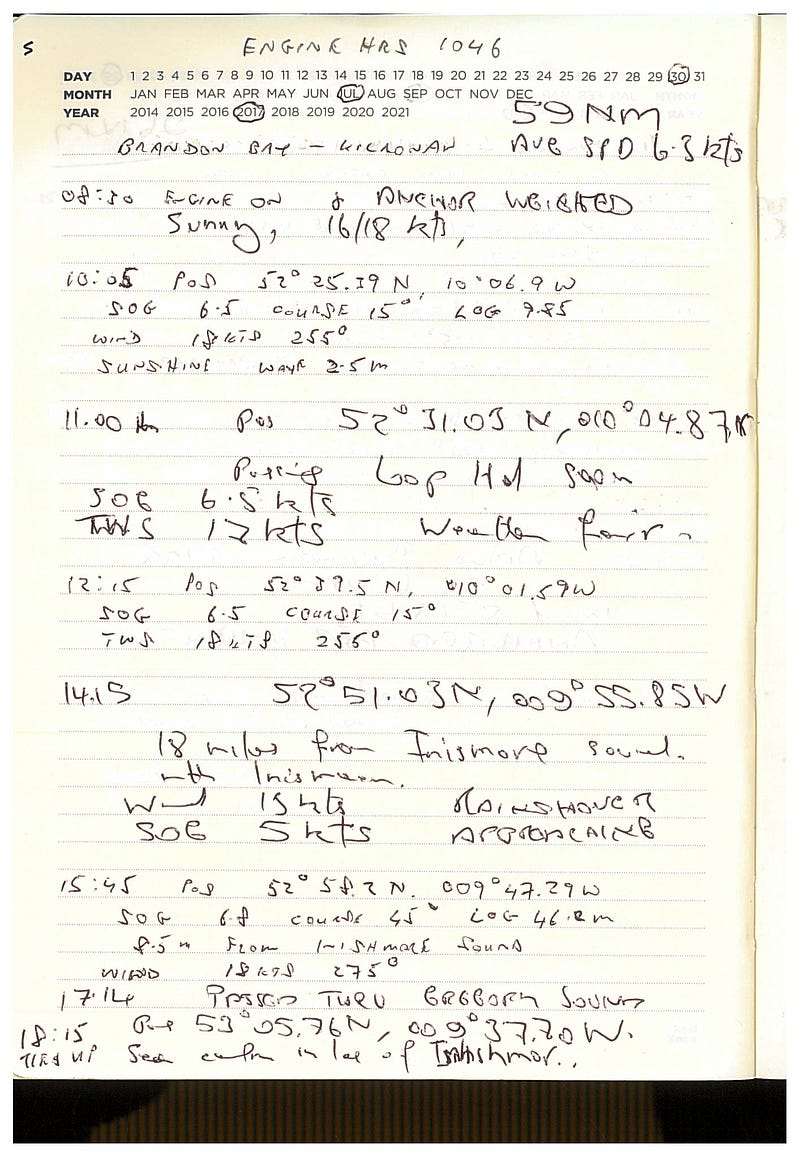 S
ENGINE HRS 1046
DAY 1 2 3 4 5 6 7 8 9 10 11 12 13 14 15 16 17 18 19 20 21 22 23 24 25 26 27 28 29 30 31
MONTH JAN FEB MAR APR MAY JUN JUL AUG SEP OCT NOV DEC
YEAR 2014 2015 2016 2017 2018 2019 2020 2021
59 NM
BRANDON BAY - KILRONAN AVG SPD 6.3 kts
08:30 ENGINE ON & ANCHOR WEIGHED
Sunny, 16/18 kts,
10:05 POS 52° 25.39 N, 10°06.9 W
SOG 6.5 COURSE 15° LOG 9.85
WIND 18 KTS 255°
SUNSHINE WAVE 2.5 m
11.00 Pos 52° 31.03 N, 010°04.87
Passing Loop Hd soon
SOG 6.5 kts
TWS 17 kts Weather fair.
12:15 POS 52° 39.5 N, 010°01.59W
SOG 6.5 COURSE 15°
TWS 18 KTS 256°
14.15 52°51.03N, 009° 55.85W
18 miles from Inismore sound.
with Inismaan.
Wind 15 kts RAINSHOWER
SOG 5 kts APPROACHING
15:45 POS 52° 58.2 N. 009°47.29W
SOG 6.8 COURSE 45° LOG 46.2m
8.5 m FROM INISHMORE SOUND
WIND 18 KTS 275°
17.14 PASSED THRU GREGORY SOUND
18:15 Pos 53°05.76N, 009°37.70W.
TIED UP Sea calm in lee of Inishmor..